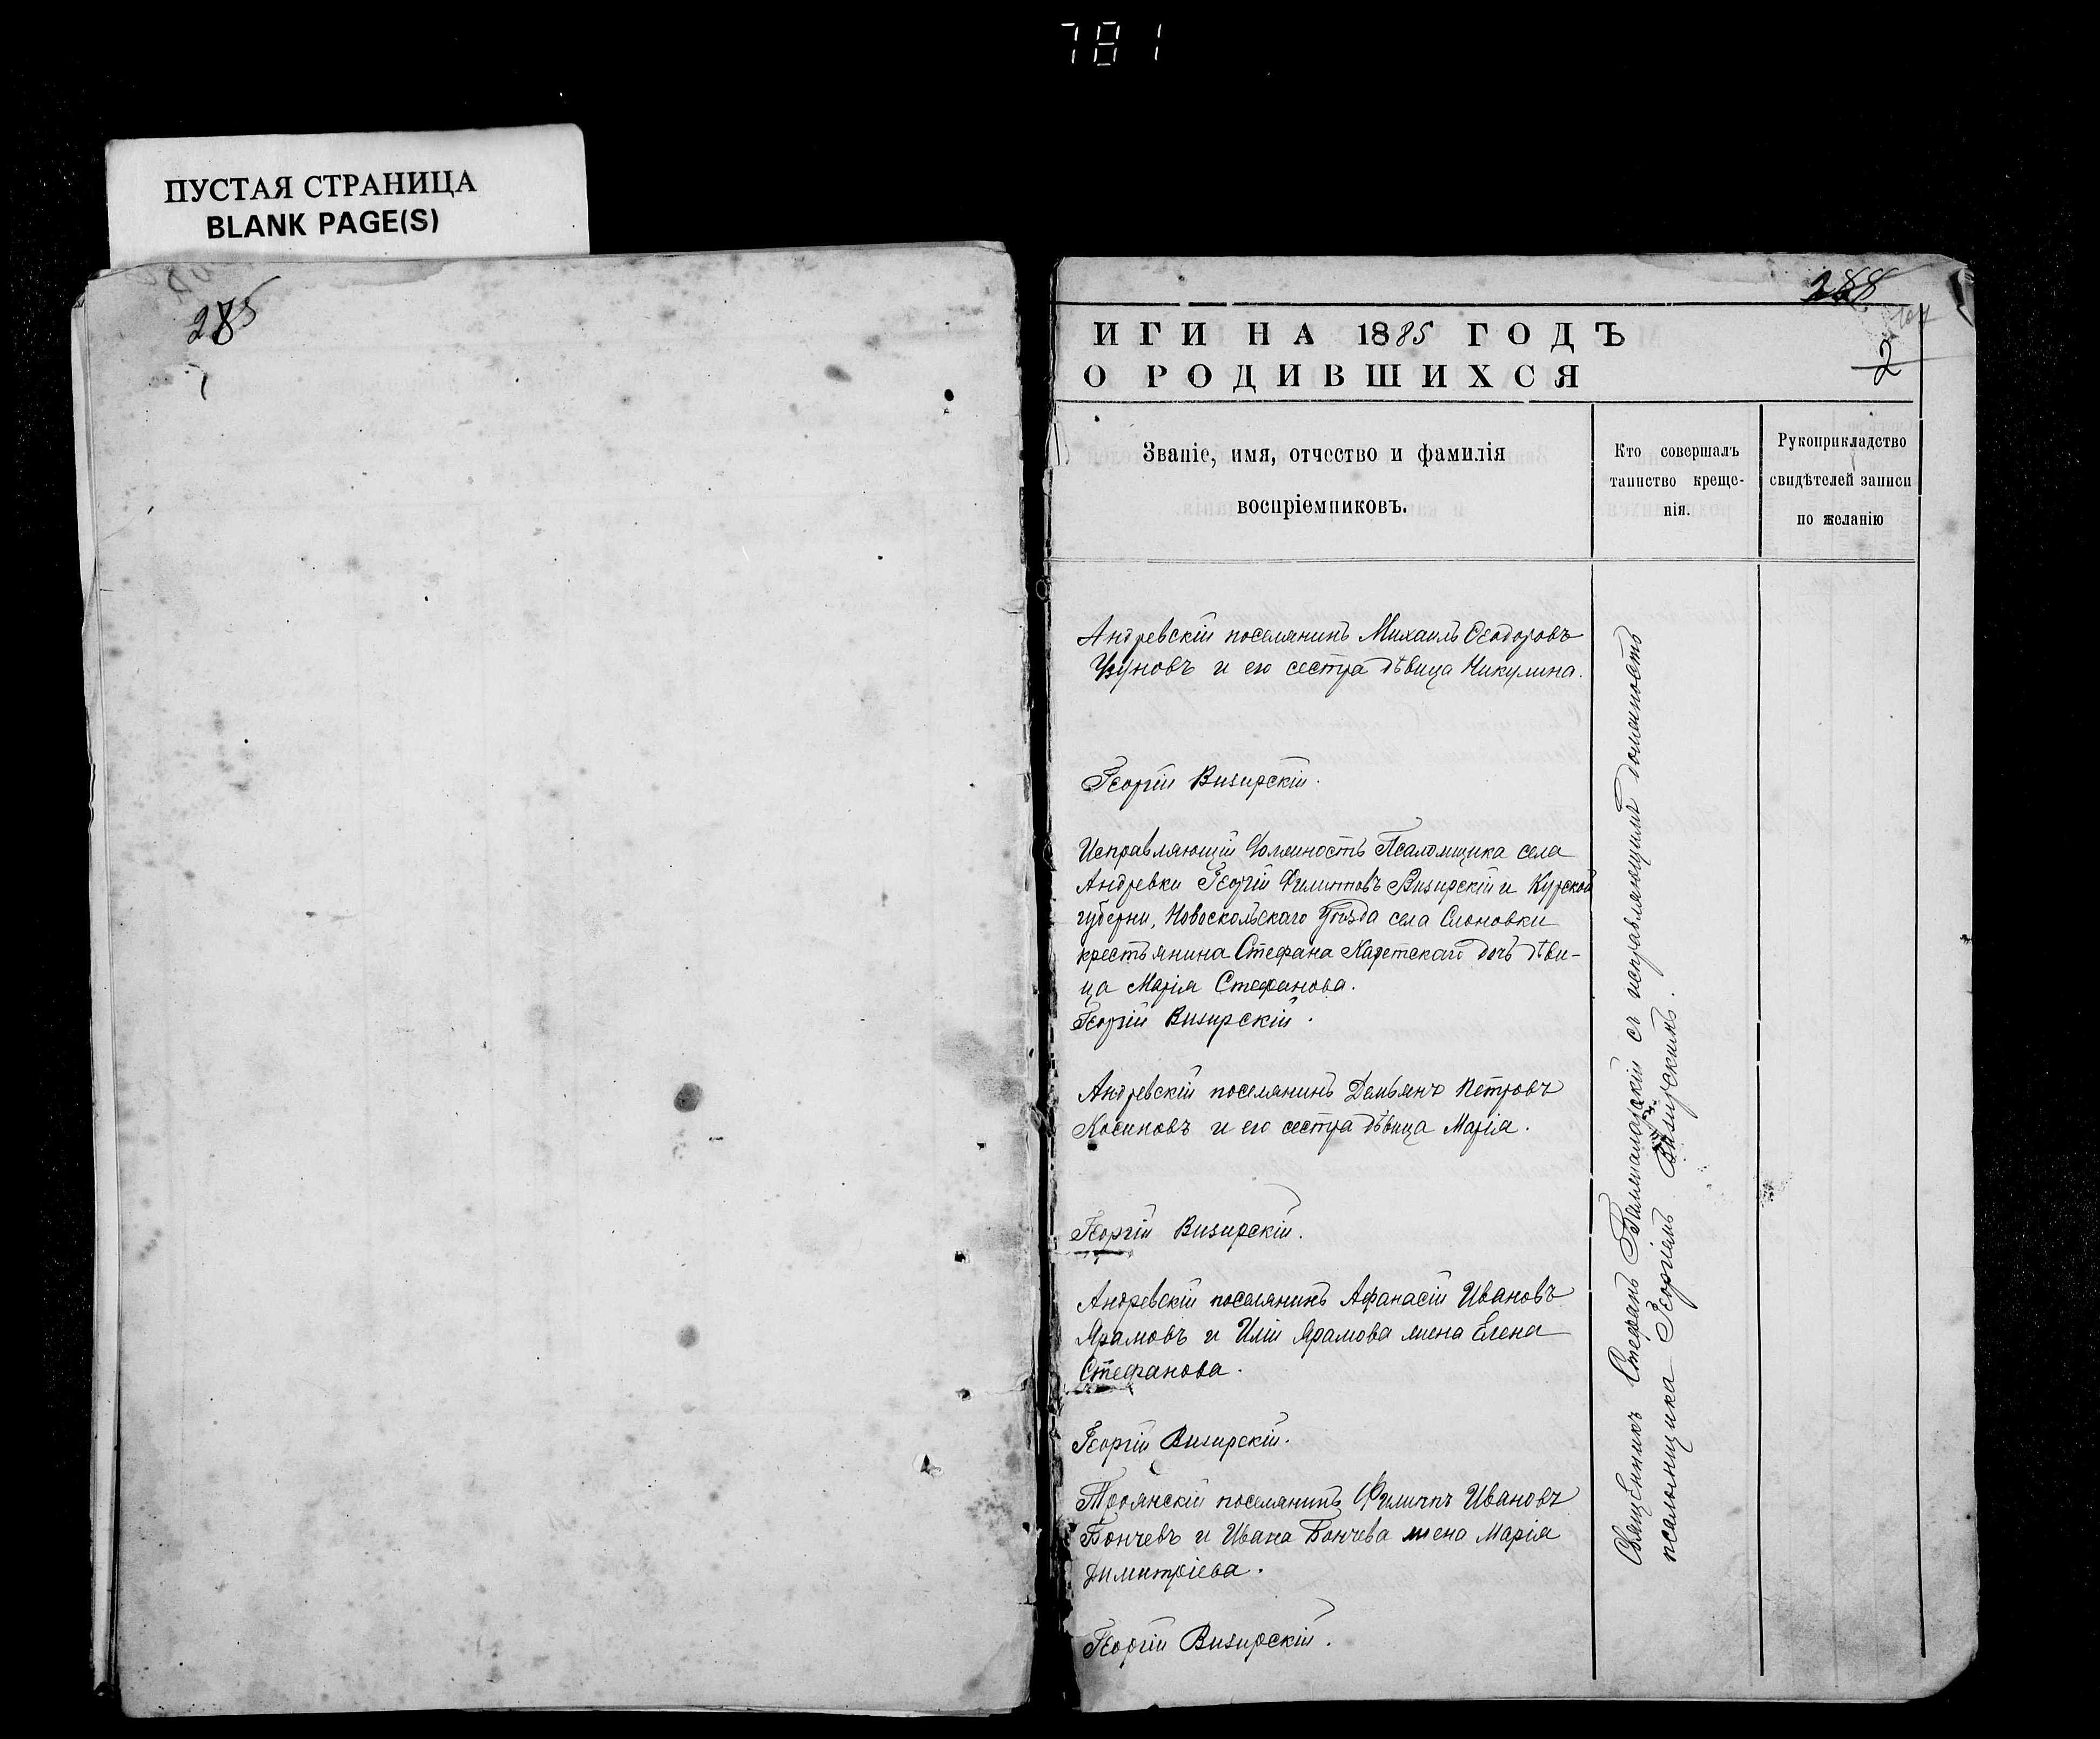 781
ПУСТАЯ СТРАНИЦА
BLANK PAGE(S)
285
288
ИГИ НА 1885 ГОДЪ
2
О РОДИВШИХСЯ
Званіе, имя, отчество и фамилія
воспріемниковъ.
Кто совершалъ
таинство креще-
нія.
Рукоприкладство
свидѣтелей записи
по желанію
Андревскій поселянинъ Михаилъ Ѳеодоровъ
Узуновъ и его сестра дѣвица Никулина.
Георгій Визирскій.
Исправляющій должность Псаломщика села
Андревки Георгій Филиповъ Визирскій и Курской
губерни, Новоскольскаго Уѣзда села Слоновки
крестьянина Стефана Каретскаго дочь дѣви-
ца Марія Стефанова.
Георгій Визирскій.
Андревскій поселянинъ Демьянъ Петровъ
Косиновъ и его сестра дѣвица Марія.
Георгій Визирскій.
Андревскій поселянинъ Афанасій Ивановъ
Арамовъ и Иліи Арамова жена Елена
Стефанова.
Георгій Визирскій.
Троянскій поселянинъ Филипъ Ивановъ
Бончевъ и Ивана Бончева жена Марія
Димитріева.
Георгій Визирскій.
Священникъ Стефанъ съ исправляющимъ должность
псаломщика Георгіемъ Визирскимъ.